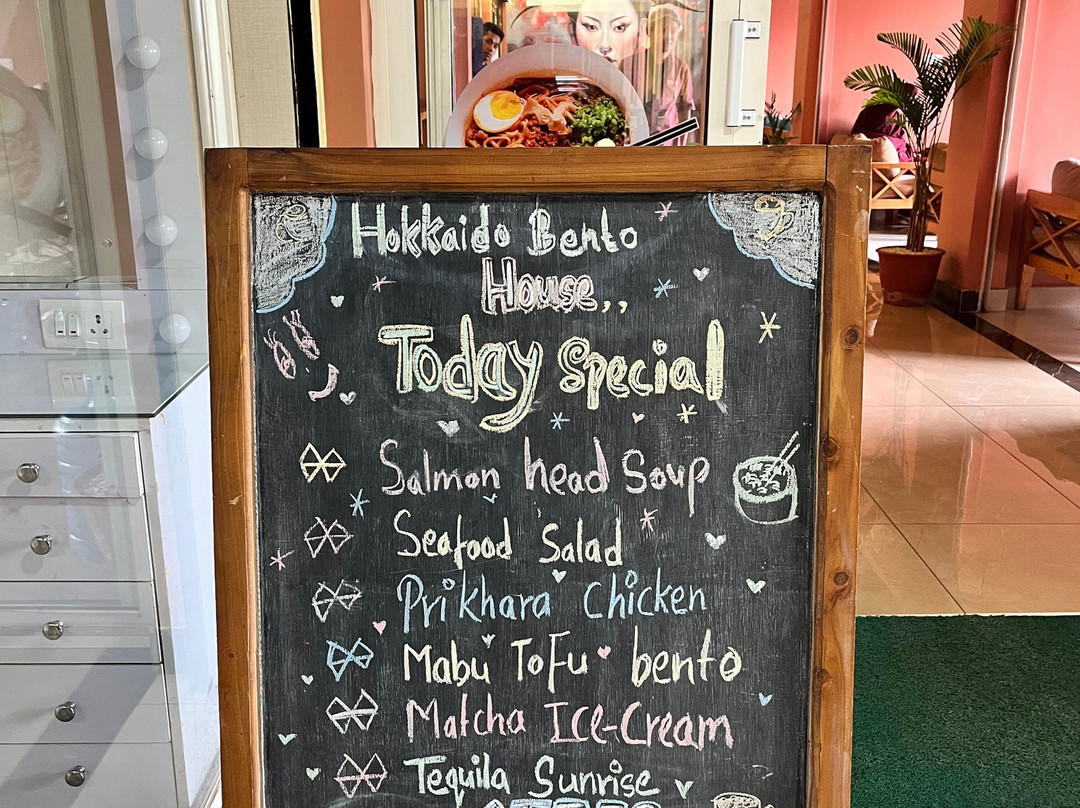 Hokkaido Bento
House,,
Today Special
Salmon head Soup
Seafood Salad
Prikhara Chicken
Mabu ToFu bento
Matcha Ice-Cream
Tequila Sunrise